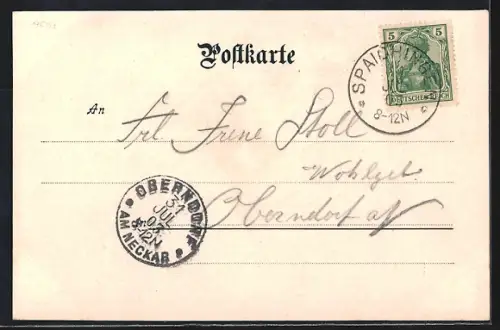 Postkarte
5 5
SPAICHINGEN
8-12N
An
Frl. Irene Stoll
Wohlgeb.
Oberndorf a/N
OBERNDORF
31
JUL
03
8-12N
AM NECKAR